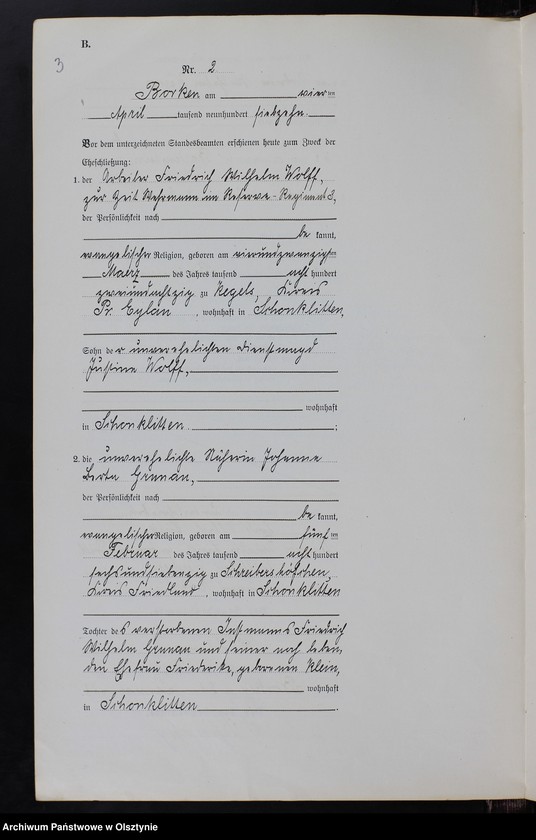 B.
3
Nr. 2
Borken am vier ten
April tausend neunhundert siebzehn.
Vor dem unterzeichneten Standesbeamten erschienen heute zum Zweck der
Eheschließung:
1. der Arbeiter Friedrich Wilhelm Wolff,
zur Zeit Wehrmann im Reserve-Regiment 3,
der Persönlichkeit nach
be kannt,
evangelischer Religion, geboren am vierundzwanzigsten
Maerz des Jahres tausend acht hundert
zweiundachtzig zu Kegels, Kreis
Pr. Eylau, wohnhaft in Schonklitten,
Sohn der unverehelichten Dienstmagd
Justine Wolff,
wohnhaft
in Schonklitten ;
2. die unverehelichte Näherin Johanne
Berta
der Persönlichkeit nach
be kannt,
evangelischer Religion, geboren am fünf ten
Februar des Jahres tausend acht hundert
sechsundsiebenzig zu Schreibershöfchen,
Kreis Friedland, wohnhaft in Schonklitten
Tochter des verstorbenen Instmanns Friedrich
Wilhelm und seiner noch leben,
den Ehefrau Friederike, geborenen Klein,
wohnhaft
in Schonklitten .
Archiwum Państwowe w Olsztynie